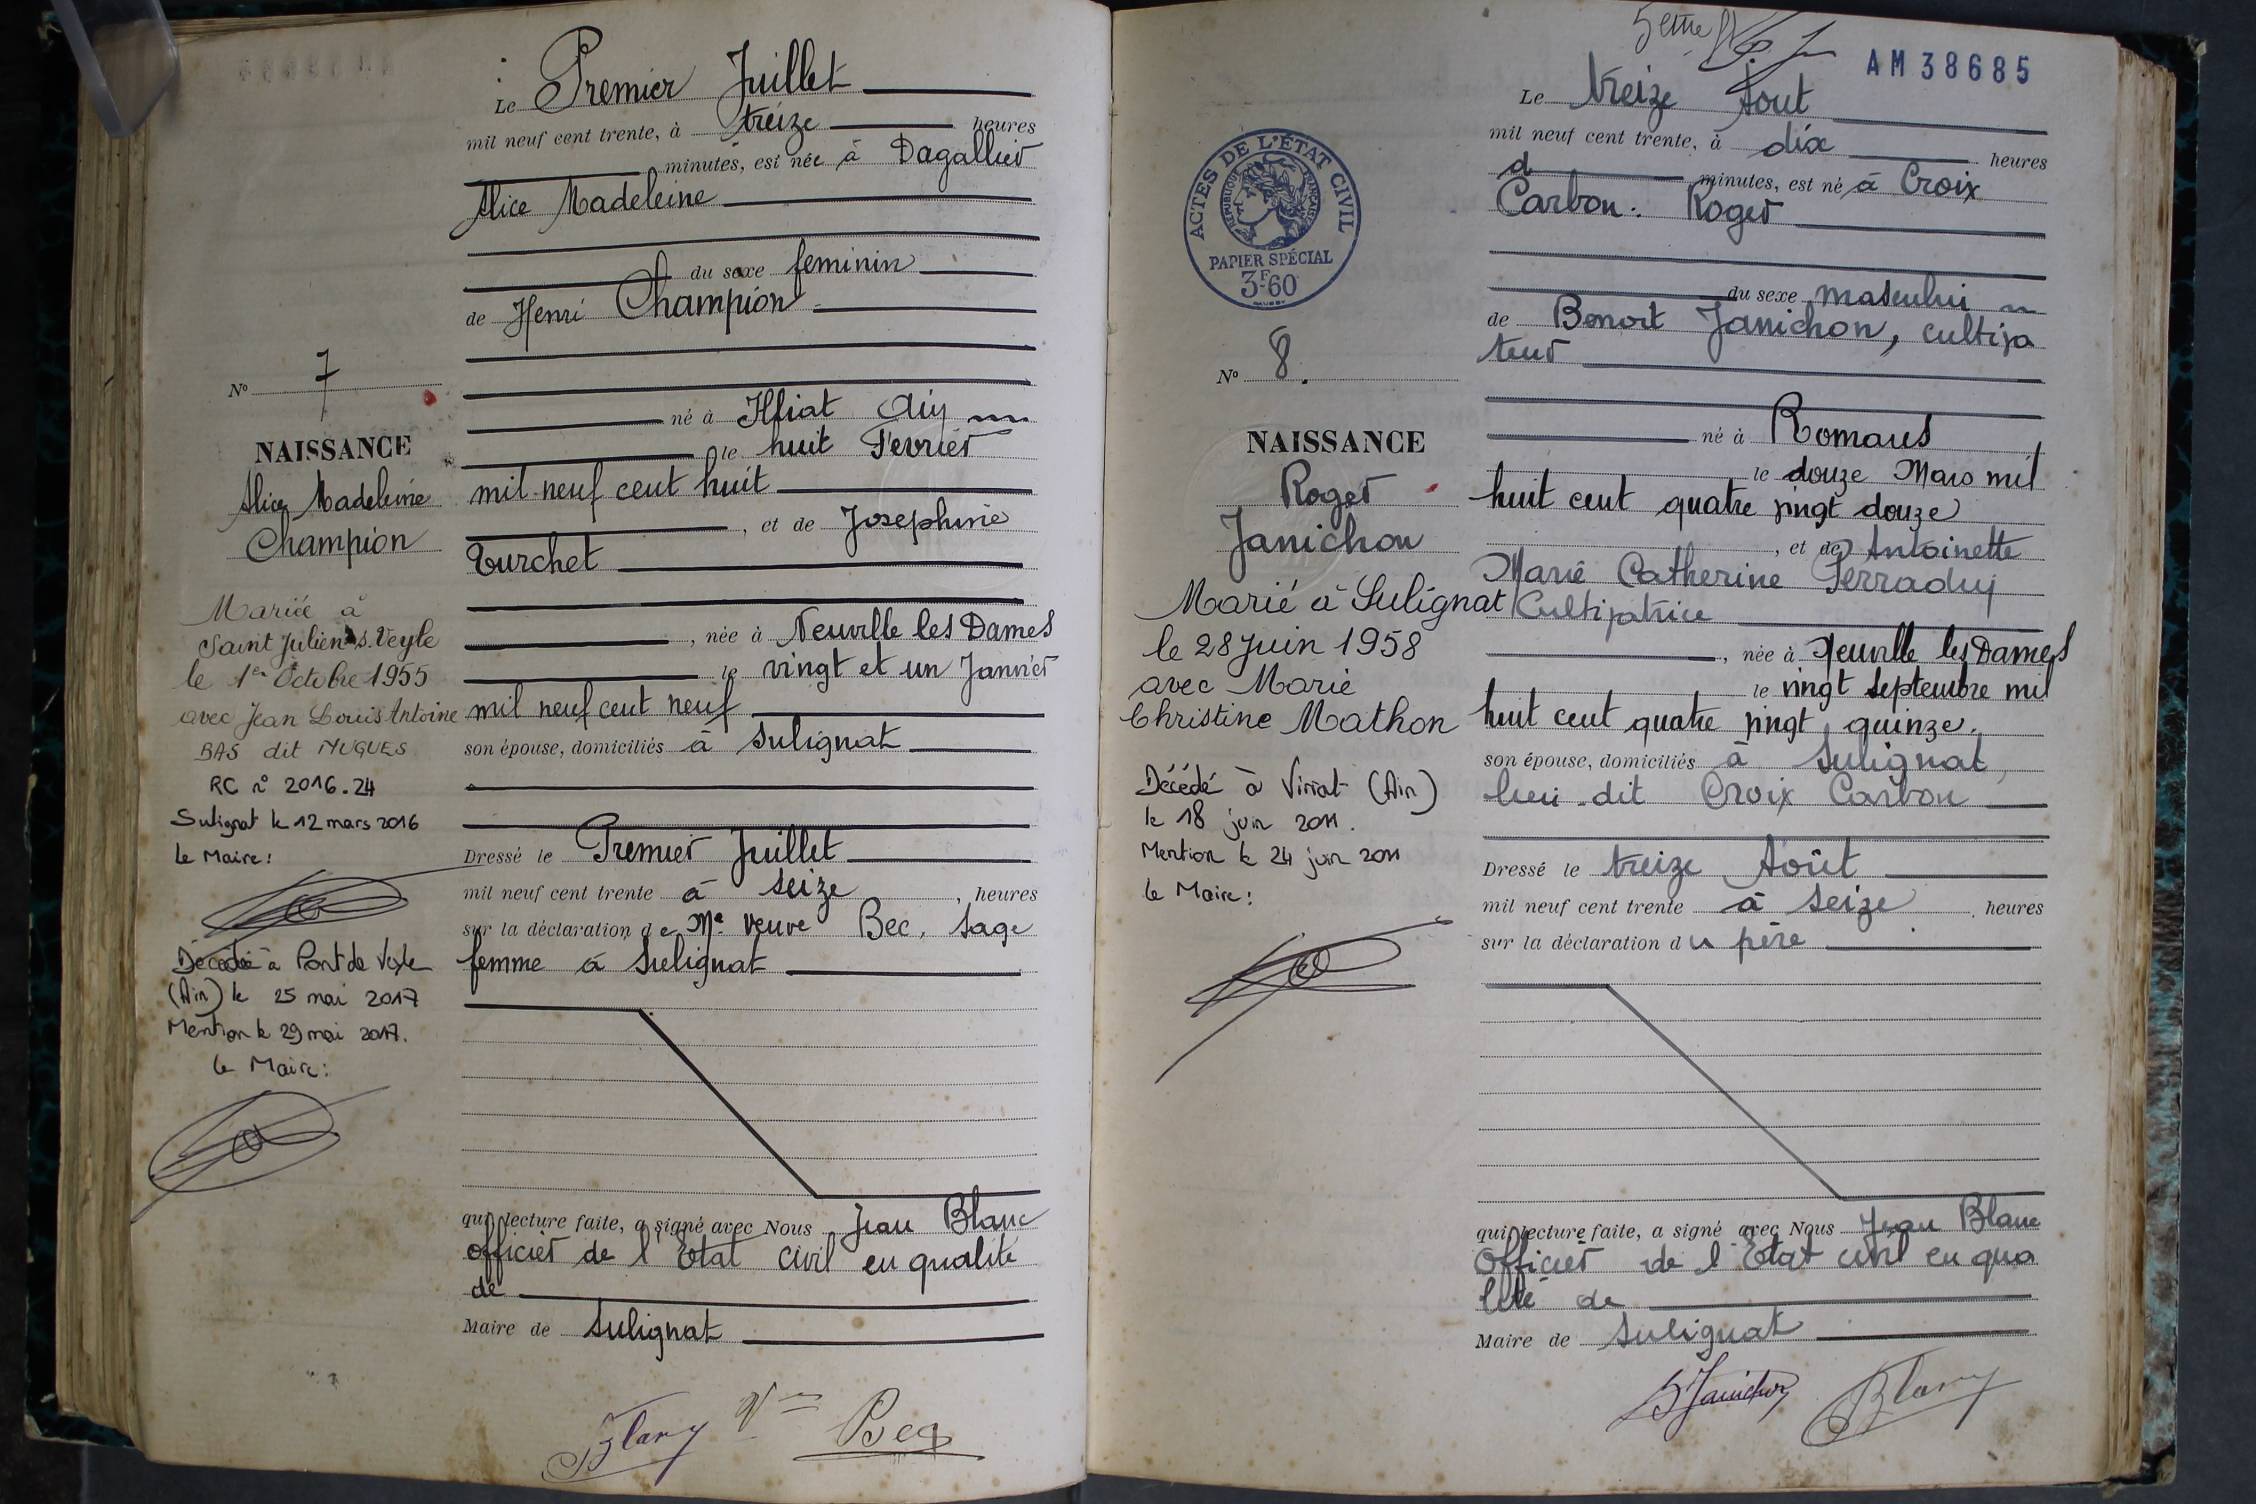 Le Premier Juillet
mil neuf cent trente, à treize heures
minutes, est née à Dagallier
Alice Madeleine
du sexe feminin
de Henri Champion
né à Illiat Ain
le huit Fevrier
mil neuf cent huit
, et de Josephine
Turchet
, née à Neuville les Dames
le vingt et un Janvier
mil neuf cent neuf
son épouse, domiciliés à Sulignat
Dressé le Premier Juillet
mil neuf cent trente à seize , heures
sur la déclaration de Me Veuve Bec, sage
femme à Sulignat
qui, lecture faite, a signé avec Nous Jean Blanc
officier de l'Etat civil en qualité
de
Maire de Sulignat
Blanc Vve Bec
No 7
NAISSANCE
Alice Madeleine
Champion
Mariée à
Saint Julien s. Veyle
le 1er Octobre 1955
avec Jean Louis Antoine
BAS dit MUGUES
RC n° 2016.24
Sulignat le 12 mars 2016
Le Maire:
Décédée à Pont de Veyle
(Ain) le 25 mai 2017
Mention le 29 mai 2017.
Le Maire:
5eme ft
AM 38685
Le treize Aout
mil neuf cent trente, à dix heures
minutes, est né à Croix
Carbon. Roger
du sexe masculin
de Benoit Janichon, cultiva
teur
né à Romans
le douze Mars mil
huit cent quatre vingt douze
, et de Antoinette
Marie Catherine Perraduy
Cultivatrice
, née à Neuville les Dames
le vingt septembre mil
huit cent quatre vingt quinze.
son épouse, domiciliés à Sulignat,
lieu-dit Croix Carbon
Dressé le treize Août
mil neuf cent trente à seize , heures
sur la déclaration du père
qui, lecture faite, a signé avec Nous Jean Blanc
Officier de l'Etat civil en qua
lité de
Maire de Sulignat
B Janichon Blanc
ACTES DE L'ÉTAT CIVIL
RÉPUBLIQUE FRANÇAISE
PAPIER SPÉCIAL
3F60
No 8.
NAISSANCE
Roger
Janichon
Marié à Sulignat
le 28 Juin 1958
avec Marie
Christine Mathon
Décédé à Viriat (Ain)
le 18 juin 2011.
Mention le 24 juin 2011
Le Maire: